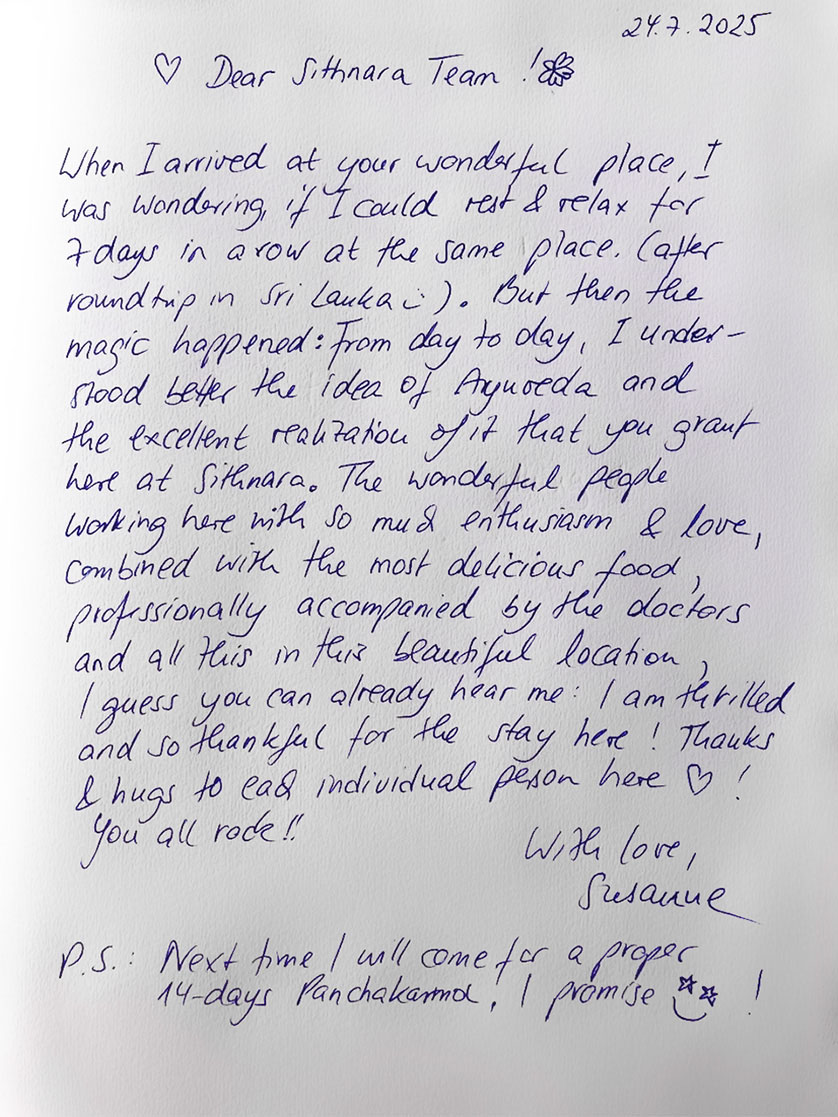 24.7.2025
♡ Dear Sithnara Team !
When I arrived at your wonderful place, I
was wondering, if I could rest & relax for
7 days in a row at the same place. (after
roundtrip in Sri Lanka :) ). But then the
magic happened: From day to day, I under-
stood better the idea of Ayuveda and
the excellent realization of it that you grant
here at Sithnara. The wonderful people
working here with so much enthusiasm & love,
combined with the most delicious food,
professionally accompanied by the doctors
and all this in this beautiful location,
I guess you can already hear me: I am thrilled
and so thankful for the stay here! Thanks
& hugs to each individual person here ♡ !
You all rock!!
With love,
Susanne
P.S.: Next time I will come for a proper
14-days Panchakarma, I promise !